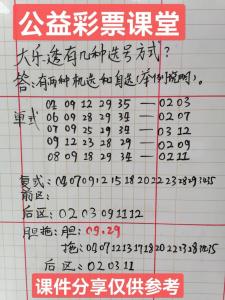 公益彩票课堂
大乐透有几种选号方式?
答:有两种机选和自选(举例说明)。
04 09 12 29 35 — 02 03
单式 06 09 28 29 34 — 02 07
07 09 25 29 34 — 03 12
09 12 23 28 29 — 02 09
08 09 18 29 34 — 02 11
复式: 04 07 09 12 15 18 20 22 23 28 29 34 35
前区:
后区: 02 03 09 11 12
胆拖: 胆: 09.29
拖: 04 07 12 13 17 18 20 22 23 28 34 35
后区: 02 03 11
课件分享仅供参考